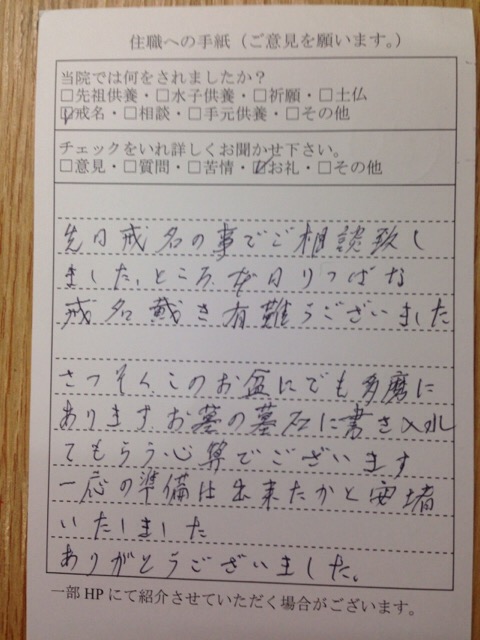 住職への手紙（ご意見を願います。）
当院では何をされましたか？
□先祖供養・□水子供養・□祈願・□土仏
☑戒名・□相談・□手元供養・□その他
チェックをいれ詳しくお聞かせ下さい。
□意見・□質問・□苦情・☑お礼・□その他
先日戒名の事でご相談致し
ました、ところ、本日りっぱな
戒名戴き有難うございました
さっそくこのお盆にでも多磨に
ありますお墓の墓石に書き入れ
てもらう心算でございます
一応の準備は出来たかと安堵
いたしました
ありがとうございました。
一部HPにて紹介させていただく場合がございます。